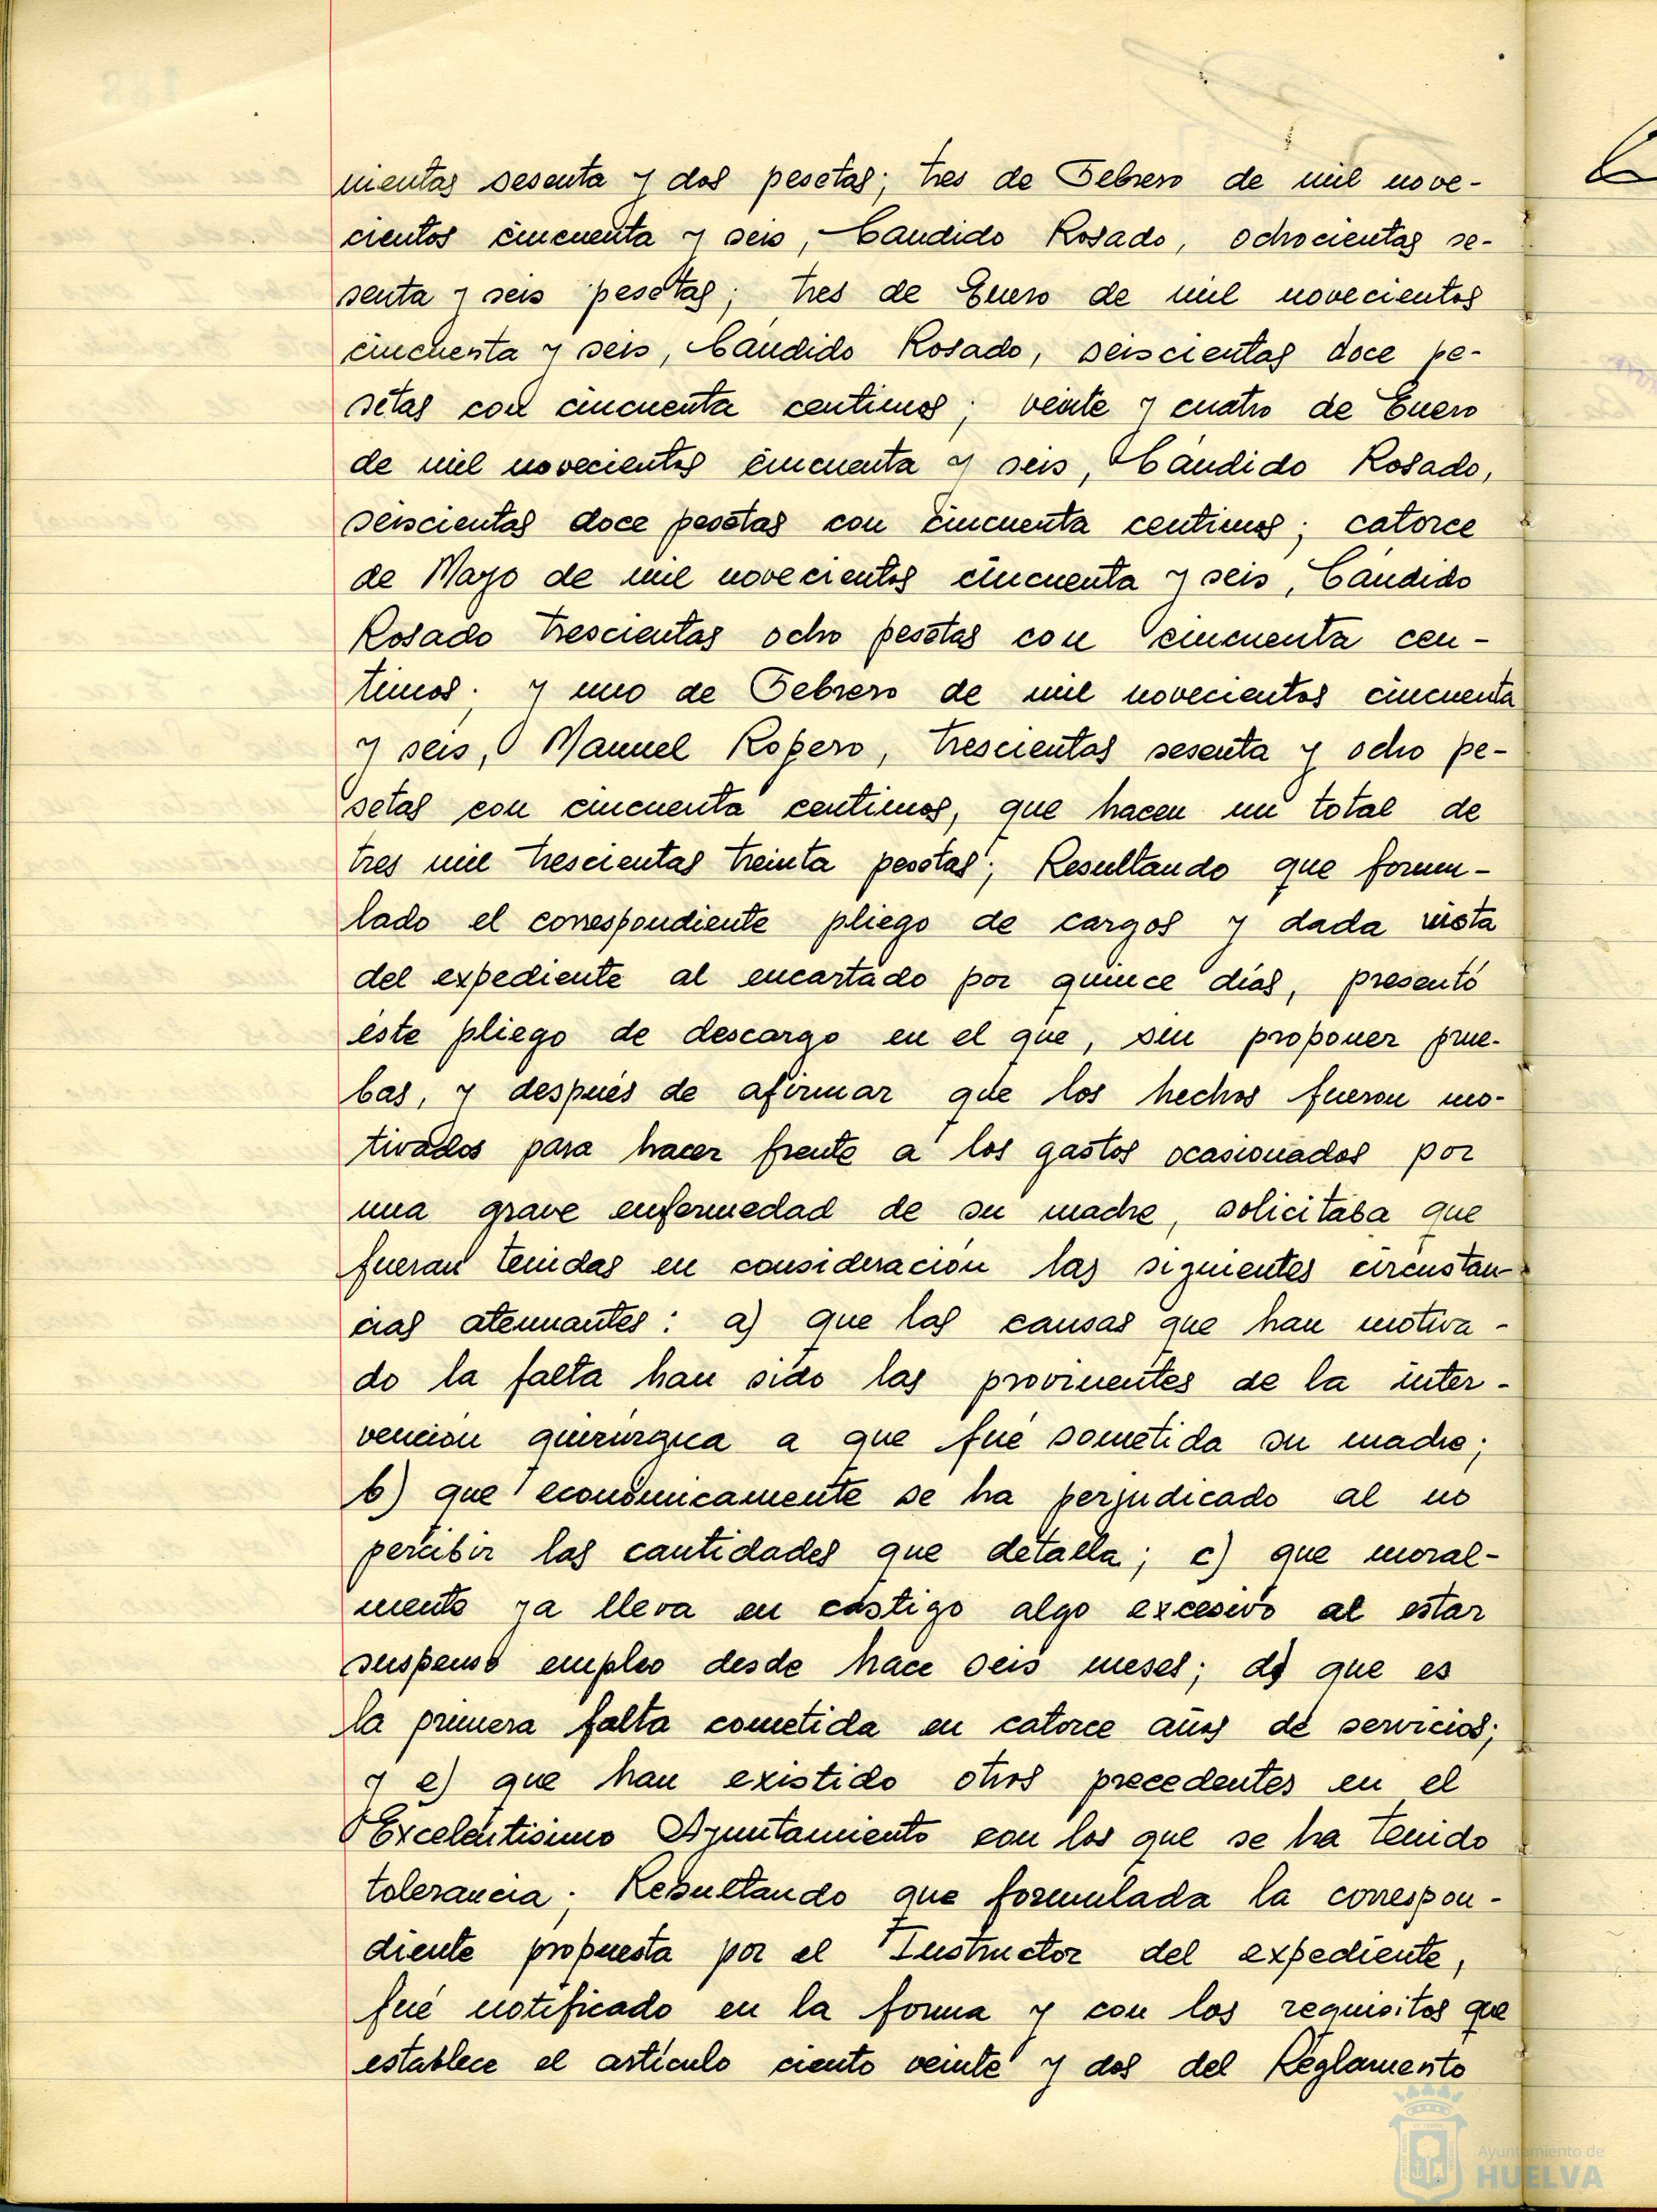 nientas sesenta y dos pesetas; tres de Febrero de mil nove-
cientos cincuenta y seis, Candido Rosado, ochocientas se-
senta y seis pesetas; tres de Enero de mil novecientos
cincuenta y seis, Cándido Rosado, seiscientas doce pe-
setas con cincuenta centimos; veinte y cuatro de Enero
de mil novecientos cincuenta y seis, Cándido Rosado,
seiscientas doce pesetas con cincuenta centimos; catorce
de Mayo de mil novecientos cincuenta y seis, Cándido
Rosado trescientas ocho pesetas con cincuenta cen-
timos; y uno de Febrero de mil novecientos cincuenta
y seis, Manuel Ropero, trescientas sesenta y ocho pe-
setas con cincuenta centimos, que hacen un total de
tres mil trescientas treinta pesetas; Resultando que formu-
lado el correspondiente pliego de cargos y dada vista
del expediente al encartado por quince días, presentó
éste pliego de descargo en el que, sin proponer prue-
bas, y después de afirmar que los hechos fueron mo-
tivados para hacer frente a los gastos ocasionados por
una grave enfermedad de su madre, solicitaba que
fueran tenidas en consideración las siguientes circustan-
cias atenuantes: a) que las causas que han motiva-
do la falta han sido las provinentes de la inter-
vención quirúrgica a que fué sometida su madre;
b) que económicamente se ha perjudicado al no
percibir las cantidades que detalla; c) que moral-
mente ya lleva en castigo algo excesivo al estar
suspenso empleo desde hace seis meses; d) que es
la primera falta cometida en catorce años de servicios;
y e) que han existido otros precedentes en el
Excelentisimo Ayuntamiento con los que se ha tenido
tolerancia; Resultando que formulada la correspon-
diente propuesta por el Instructor del expediente,
fué notificado en la forma y con los requisitos que
establece el artículo ciento veinte y dos del Reglamento
Ayuntamiento de
HUELVA